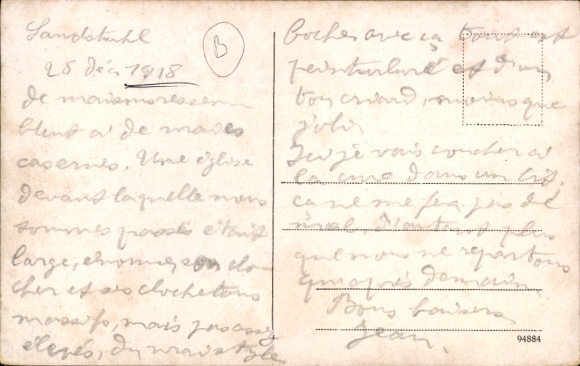 Landstuhl
28 Déc 1918
B
de maisons ressem
blent à de
casernes. Une église
devant laquelle nous
sommes passés était
large, énorme, son clo
cher et ses clochetons
massifs, mais pas assez
élevés, du vrai style
boches avec ça tout est
peinturluré et d'un
ton criard, moins que
joli.
Ici je vais coucher à
la cure dans un lit,
ça ne me fera pas de
mal, d'autant plus
que nous ne repartons
qu'après demain.
Bons baisers
Jean.
94884